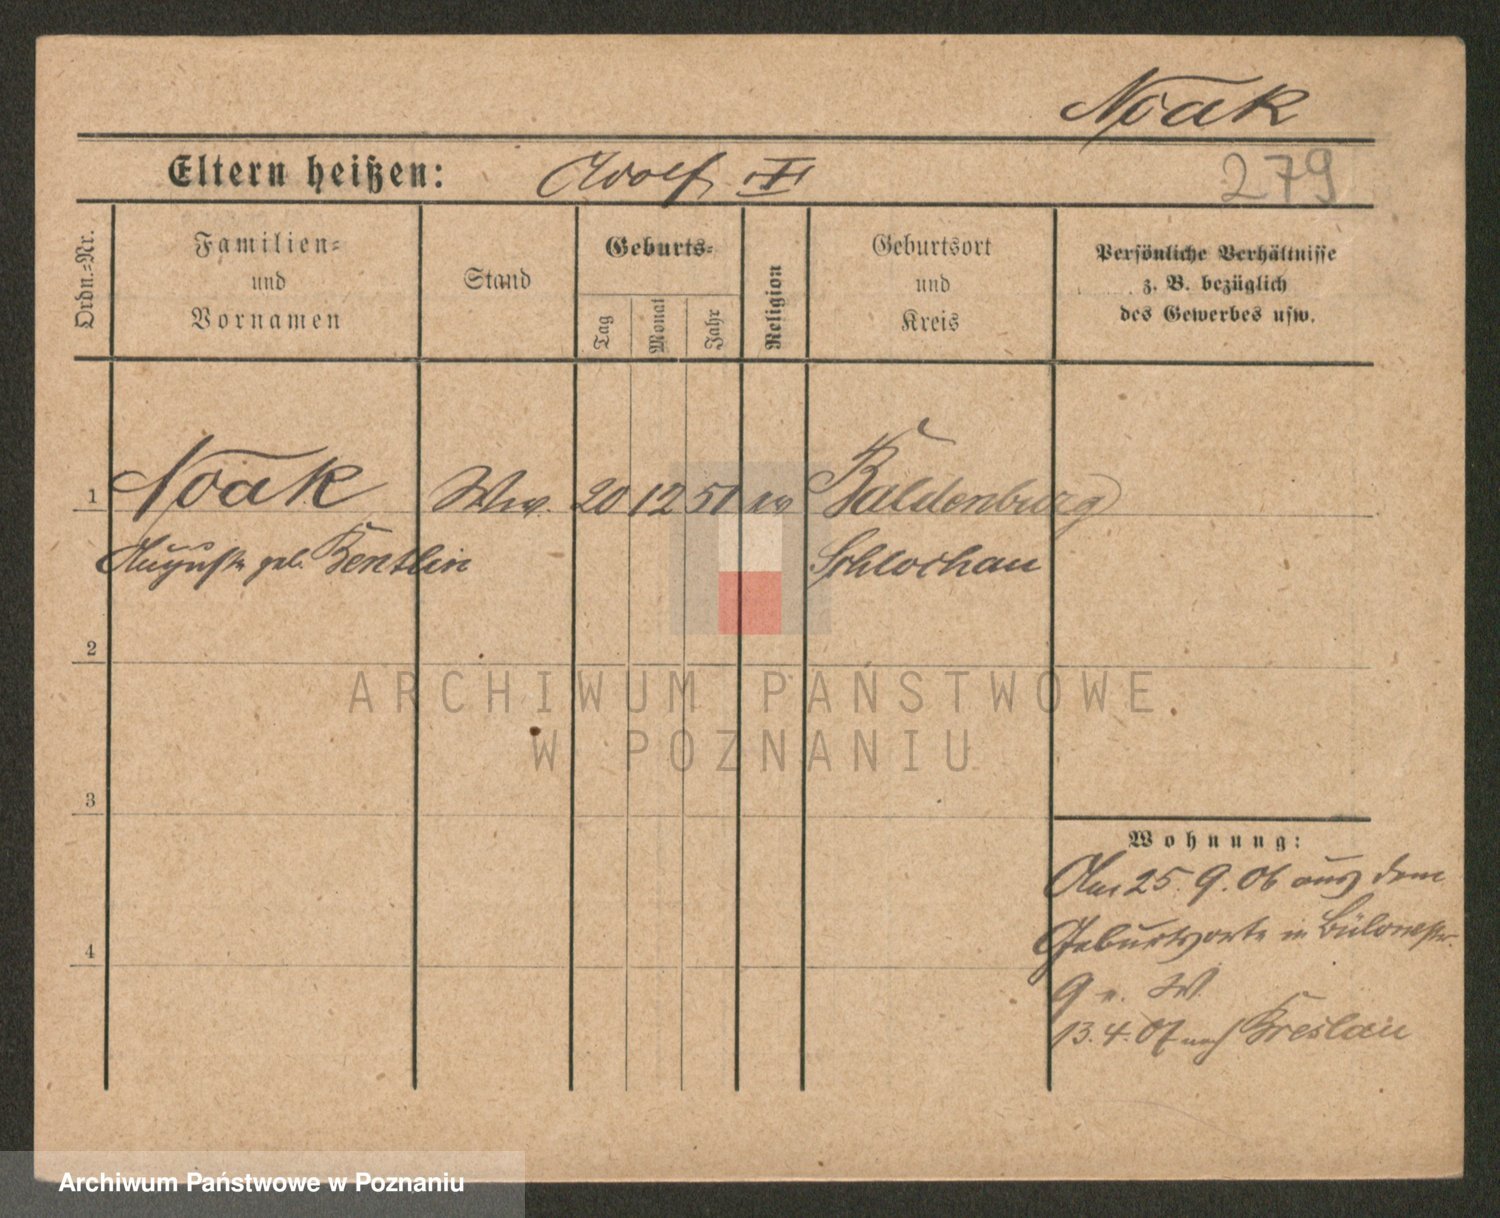 Noak
Eltern heißen: Adolf
279
Ordn.-Nr.
Familien-
und
Vornamen
Stand
Geburts-
Tag
Monat
Jahr
Religion
Geburtsort
und
Kreis
Persönliche Verhältnisse
z. B. bezüglich
des Gewerbes usw.
1 Noak Ww. 20 12 51 ev Baldenburg
Auguste geb. Schlochau
2
ARCHIWUM PAŃSTWOWE
W POZNANIU
3
Wohnung:
Am 25.9.06 aus dem
Geburtsorte in Bülowstr.
4
9 W
13.4.07 nach Breslau
Archiwum Państwowe w Poznaniu